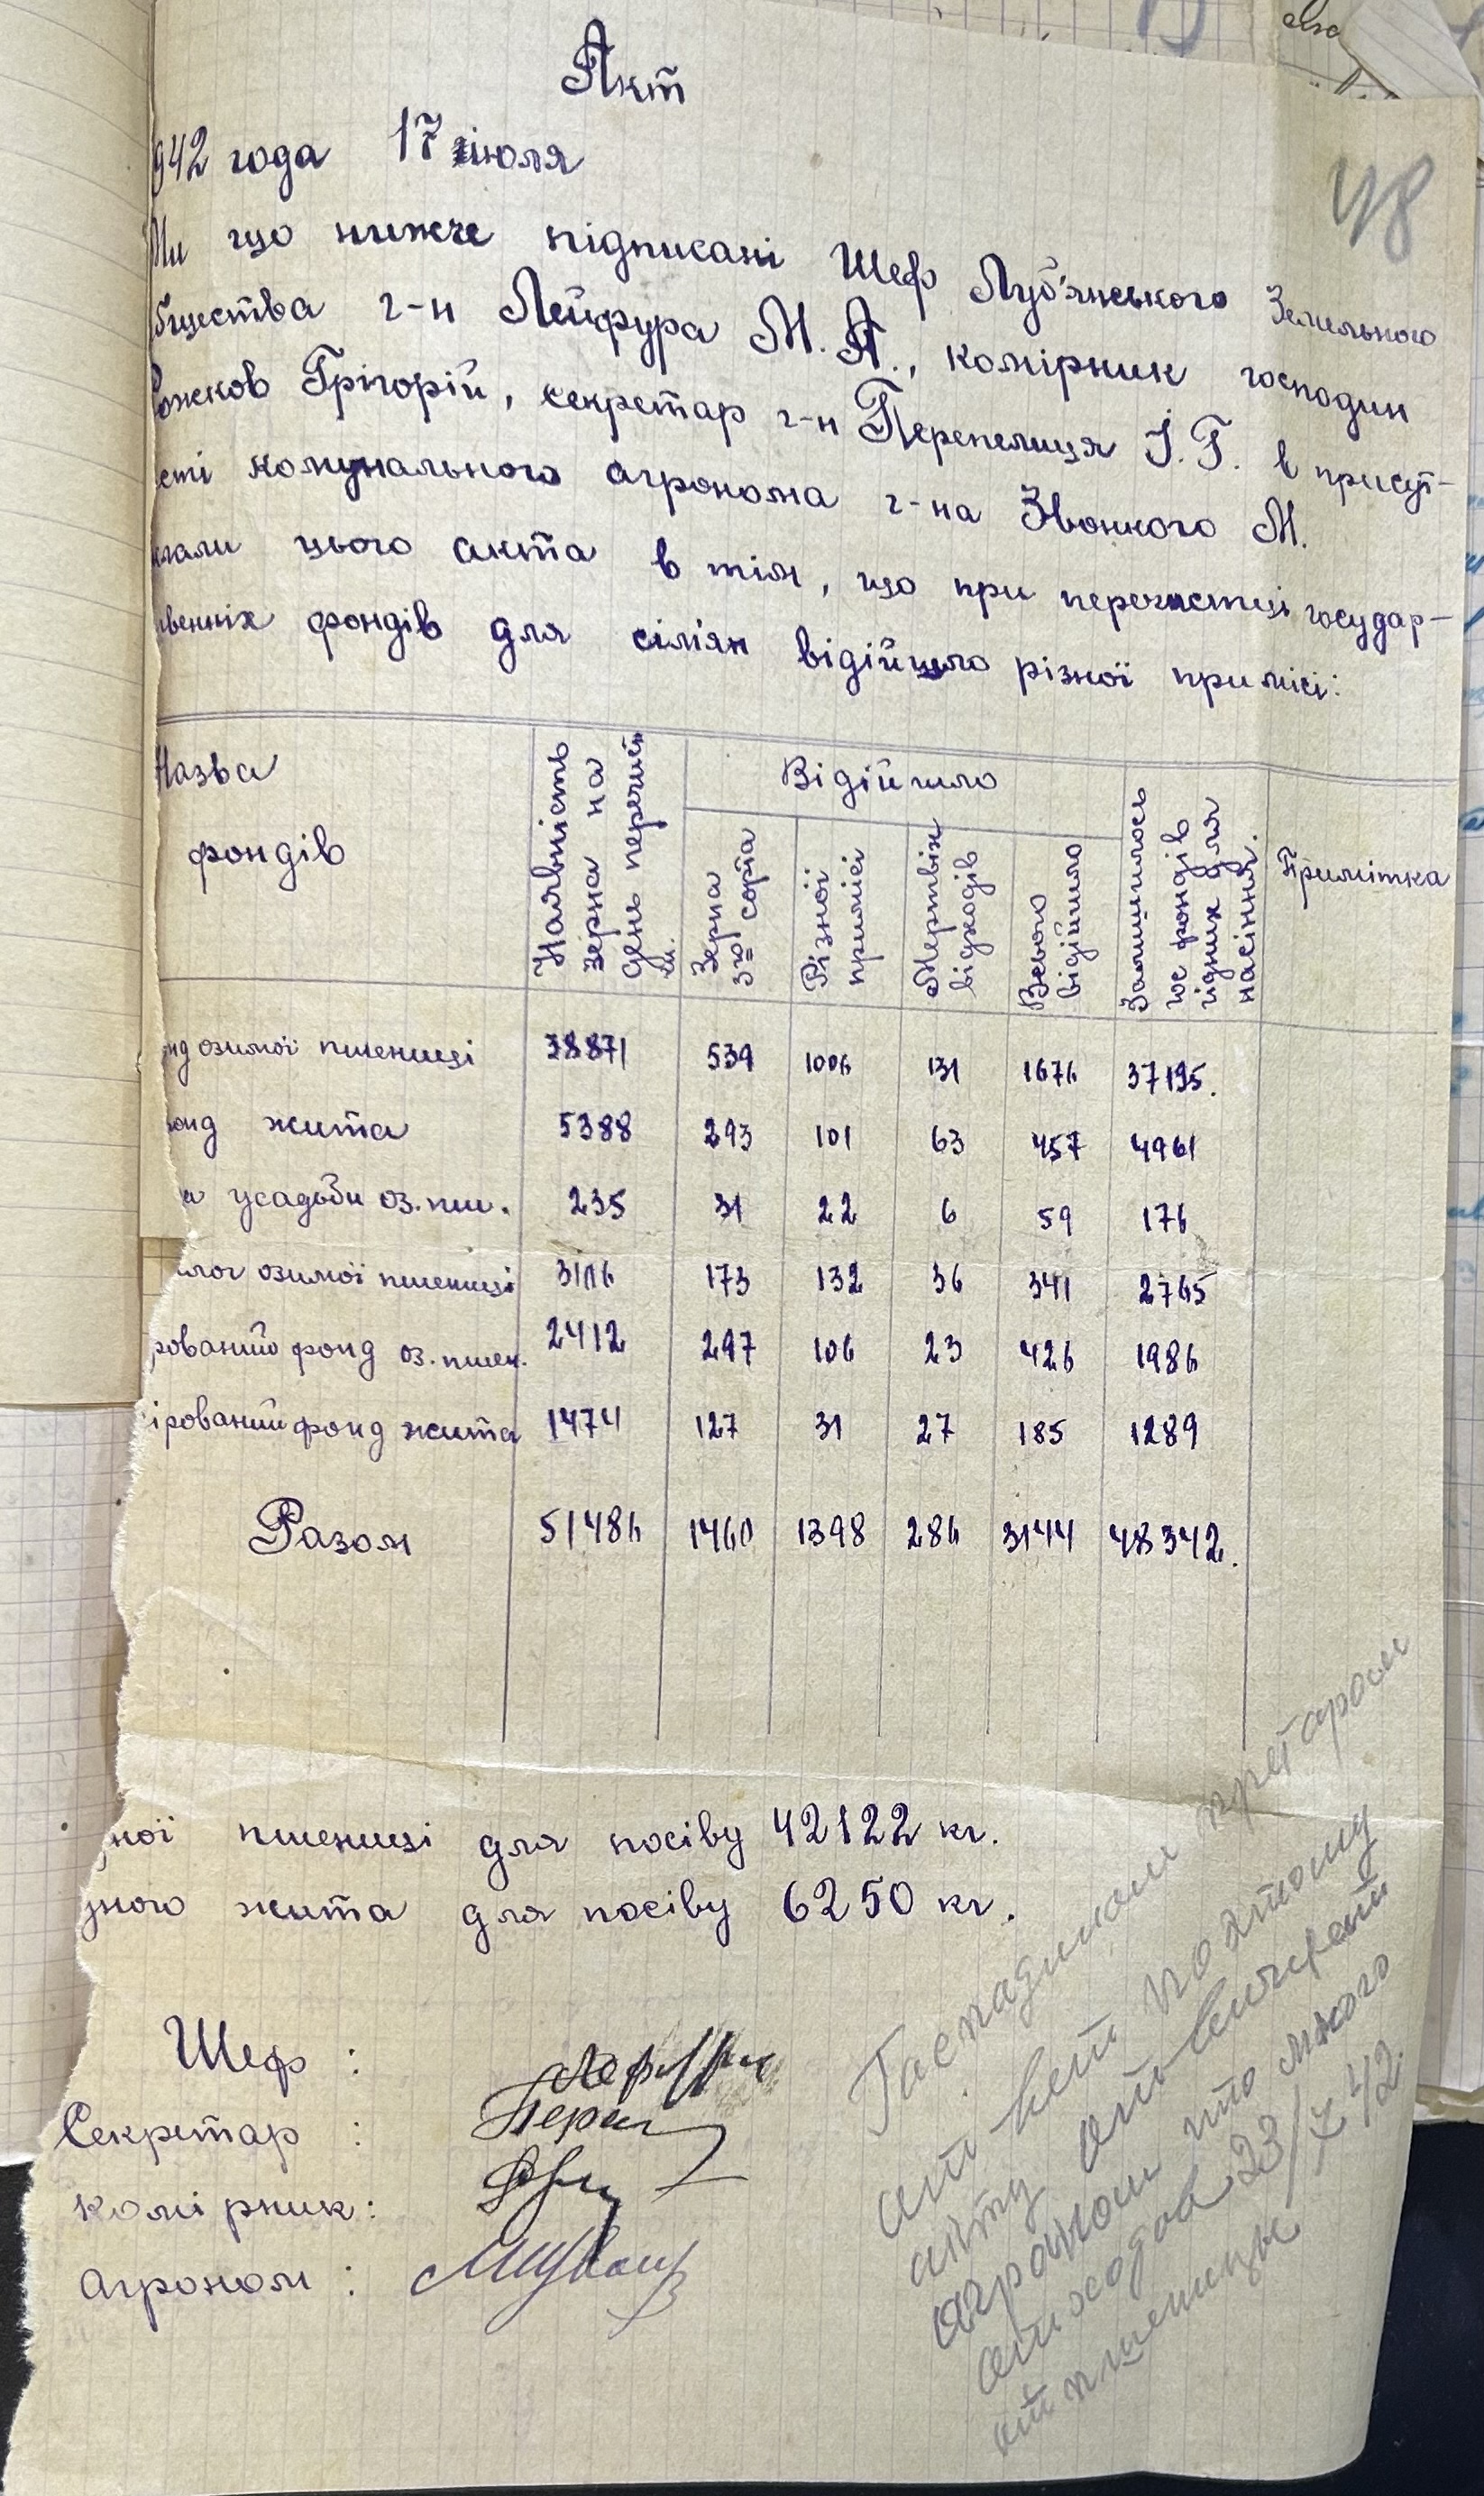 Акт
942 года 17 июля
Ми що нижче підписані Шеф Луб'янського Земельного
бщества г-н Лейфура М. А., комірник господин
ожков Грігорій, секретар г-н Перепелиця І. Г. в присут-
сті комунального агронома г-на Звонкого М.
клали цього акта в тім, що при перечистці государ-
твенніх фондів для сіміян відійшло різної приміси:
Назва фондів
Наявність зерна на день перечис
Відійшло
Зерна 3го сорта
Різної приміси
Мертвіх відходів
Всього відійшло
Залишилось фондів гідних для насіння.
Примітка
нд озимої пшениці 38871 539 1006 131 1676 37195.
онд жита 5388 293 101 63 457 4961
а усадьби оз. пш. 235 31 22 6 59 176
озимої пшениці 3106 173 132 36 341 2765
рований фонд оз. пшен. 2412 297 106 23 426 1986
ірований фонд жита 1474 127 31 27 185 1289
Разом 51486 1460 1398 286 3144 48342.
ної пшениці для посіву 42122 кг.
ного жита для посіву 6250 кг.
Шеф :
Секретар :
Комірник :
Агроном :
48
акту
агроном што много
отходов 23/7 42.
от пшеницы